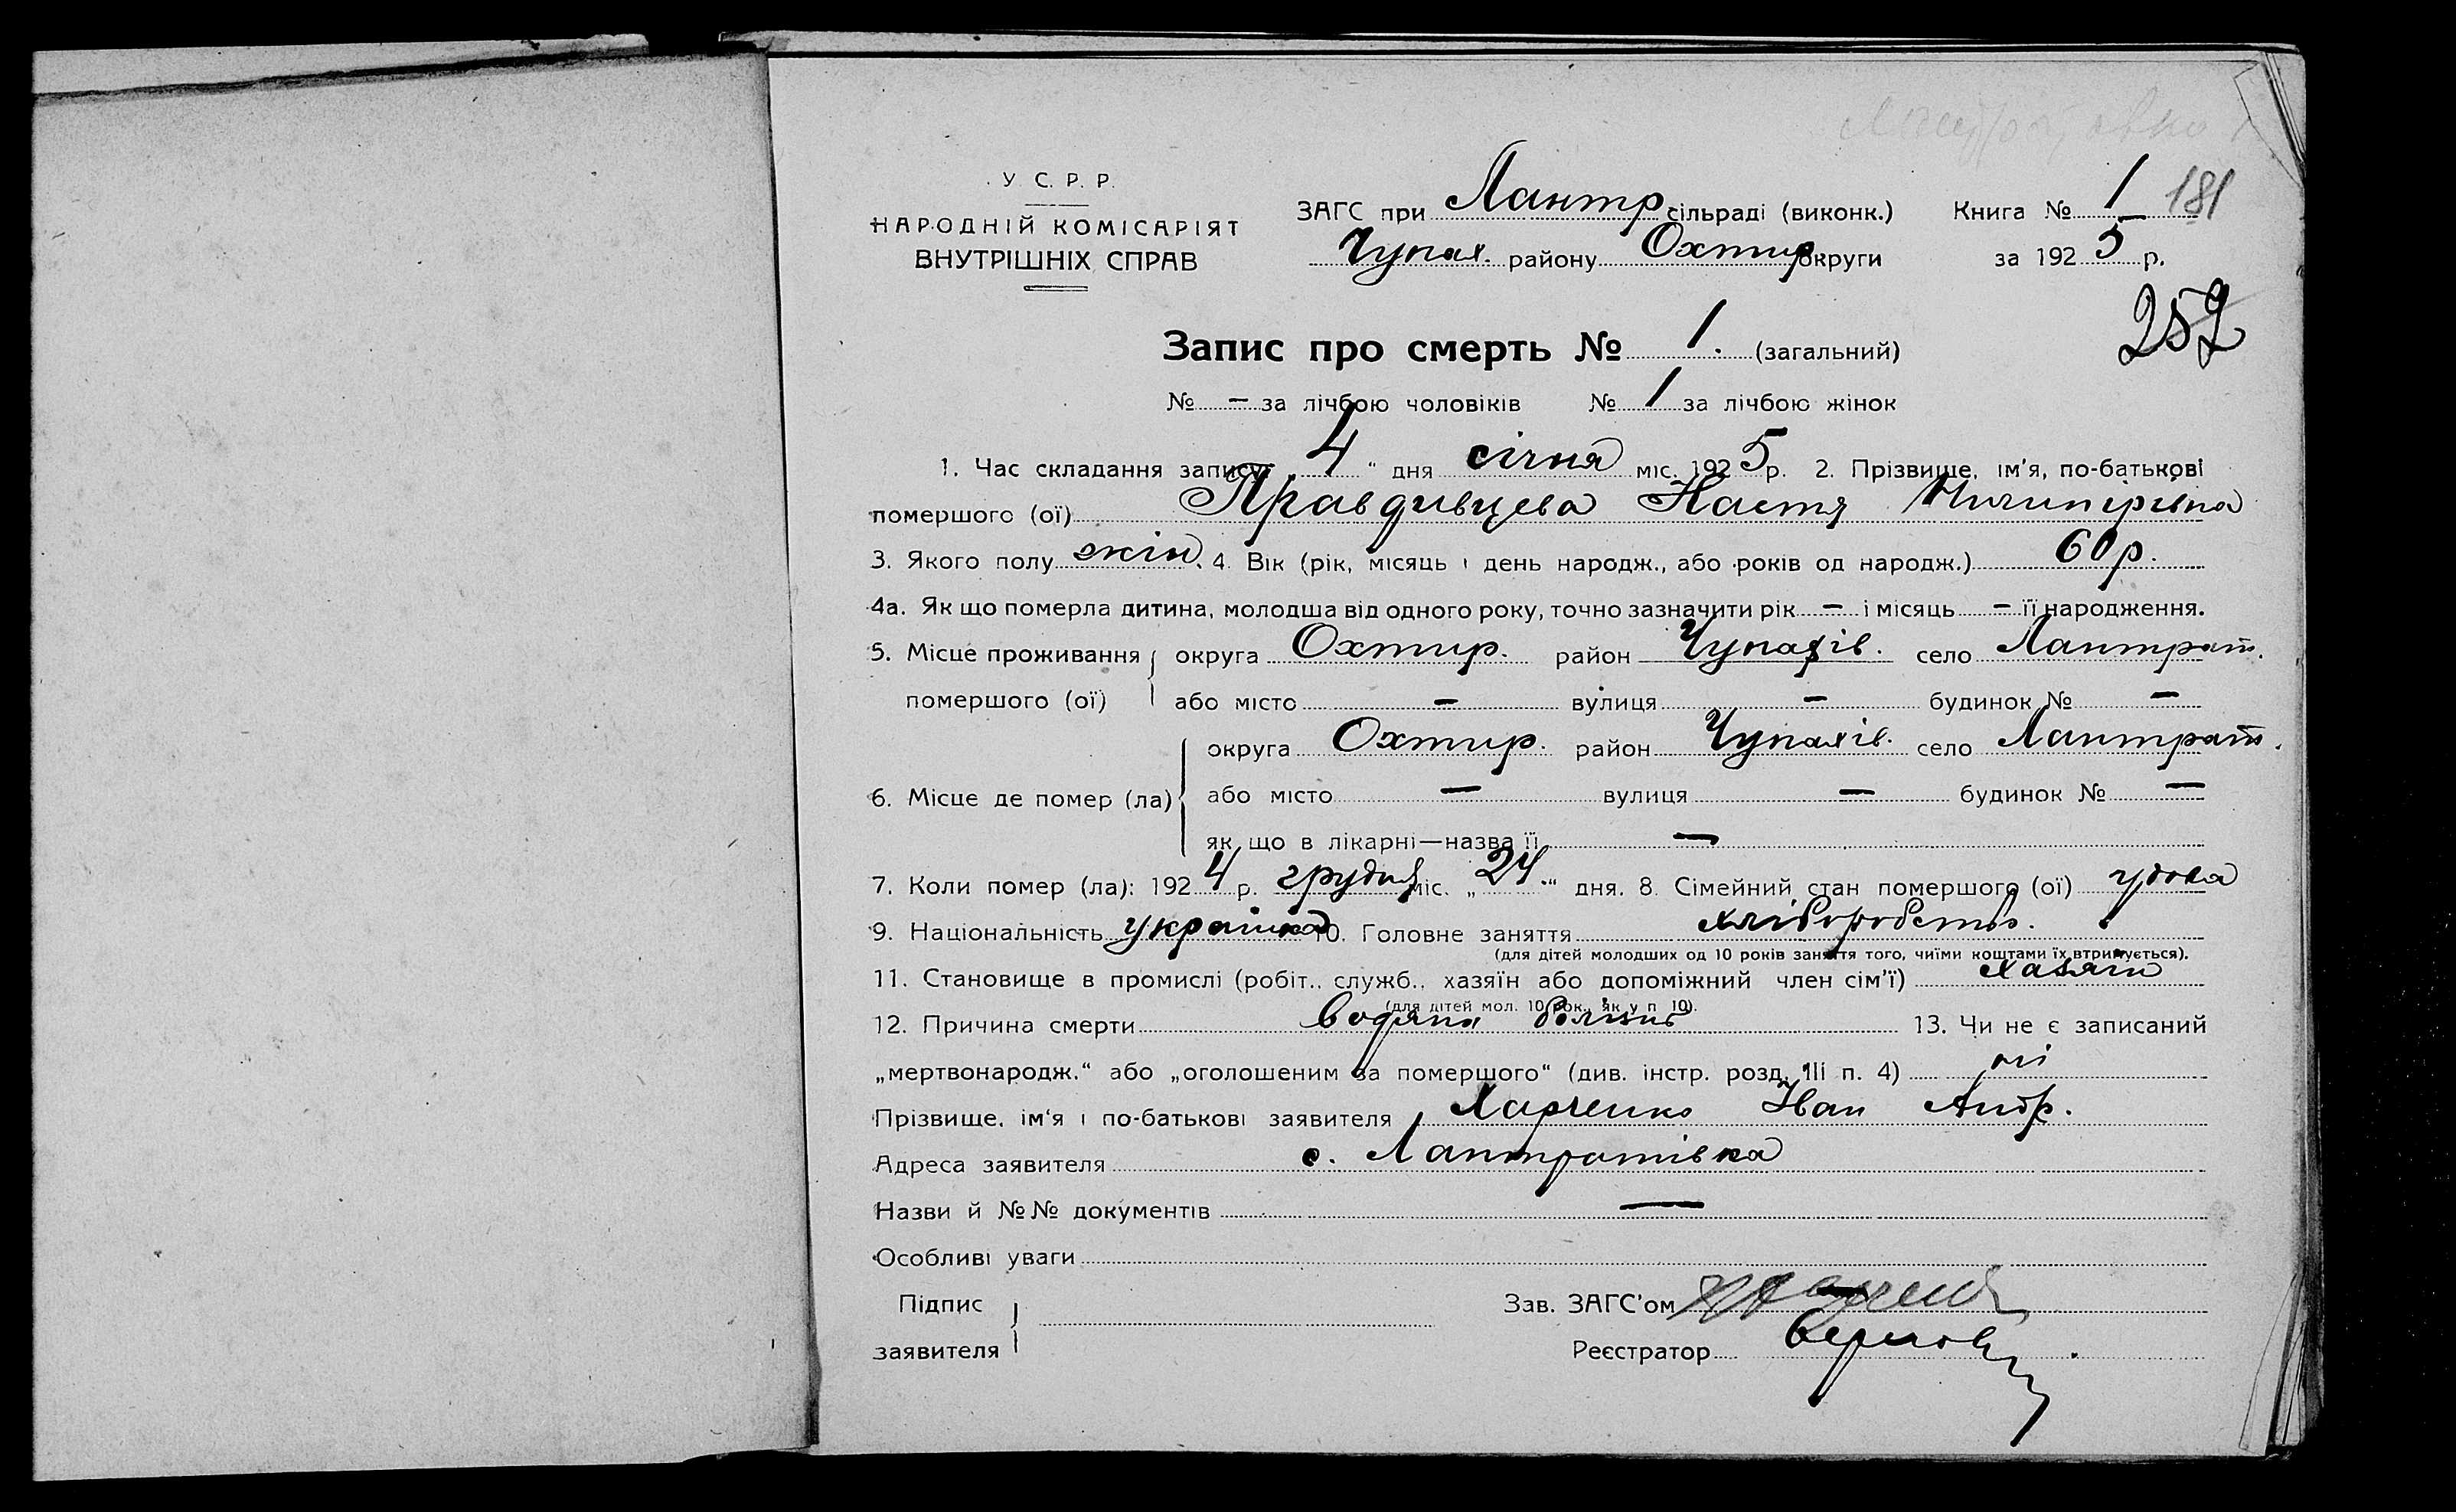 181
У. С. Р. Р.
НАРОДНІЙ КОМІСАРІЯТ
ВНУТРІШНІХ СПРАВ
ЗАГС при Лантр сільраді (виконк.) Книга № 1
Чупах. району Охтир округи за 1925 р.
252
Запис про смерть № 1. (загальний)
№ — за лічбою чоловіків № 1 за лічбою жінок
1. Час складання запису: „4“ дня січня міс. 1925 р. 2. Прізвище, ім'я, по-батькові
помершого (ої) Правдивцева Настя Ничипірівна
3. Якого полу жін. 4. Вік (рік, місяць і день народж., або років од народж.) 60 р.
4а. Як що померла дитина, молодша від одного року, точно зазначити рік — і місяць — її народження.
5. Місце проживання округа Охтир. район Чупахів. село Лантрат.
помершого (ої) або місто — вулиця — будинок № —
округа Охтир. район Чупахів. село Лантрат.
6. Місце де помер (ла) або місто — вулиця — будинок № —
як що в лікарні—назва її —
7. Коли помер (ла): 1924 р. грудня міс. „24“ дня. 8. Сімейний стан помершого (ої) удова
9. Національність українка 10. Головне заняття хліборобство.
(для дітей молодших од 10 років заняття того, чиїми коштами їх втримується).
11. Становище в промислі (робіт., служб., хазяїн або допоміжний член сім'ї) хазяїн
(для дітей мол. 10 рок., як у п. 10).
12. Причина смерти водяна болізнь 13. Чи не є записаний
„мертвонародж.“ або „оголошеним за помершого“ (див. інстр. розд. III п. 4) ні
Прізвище, ім'я і по-батькові заявителя Харченко Іван Андр.
Адреса заявителя с. Лантратівка
Назви й №№ документів —
Особливі уваги
Підпис Зав. ЗАГС'ом
заявителя Реєстратор